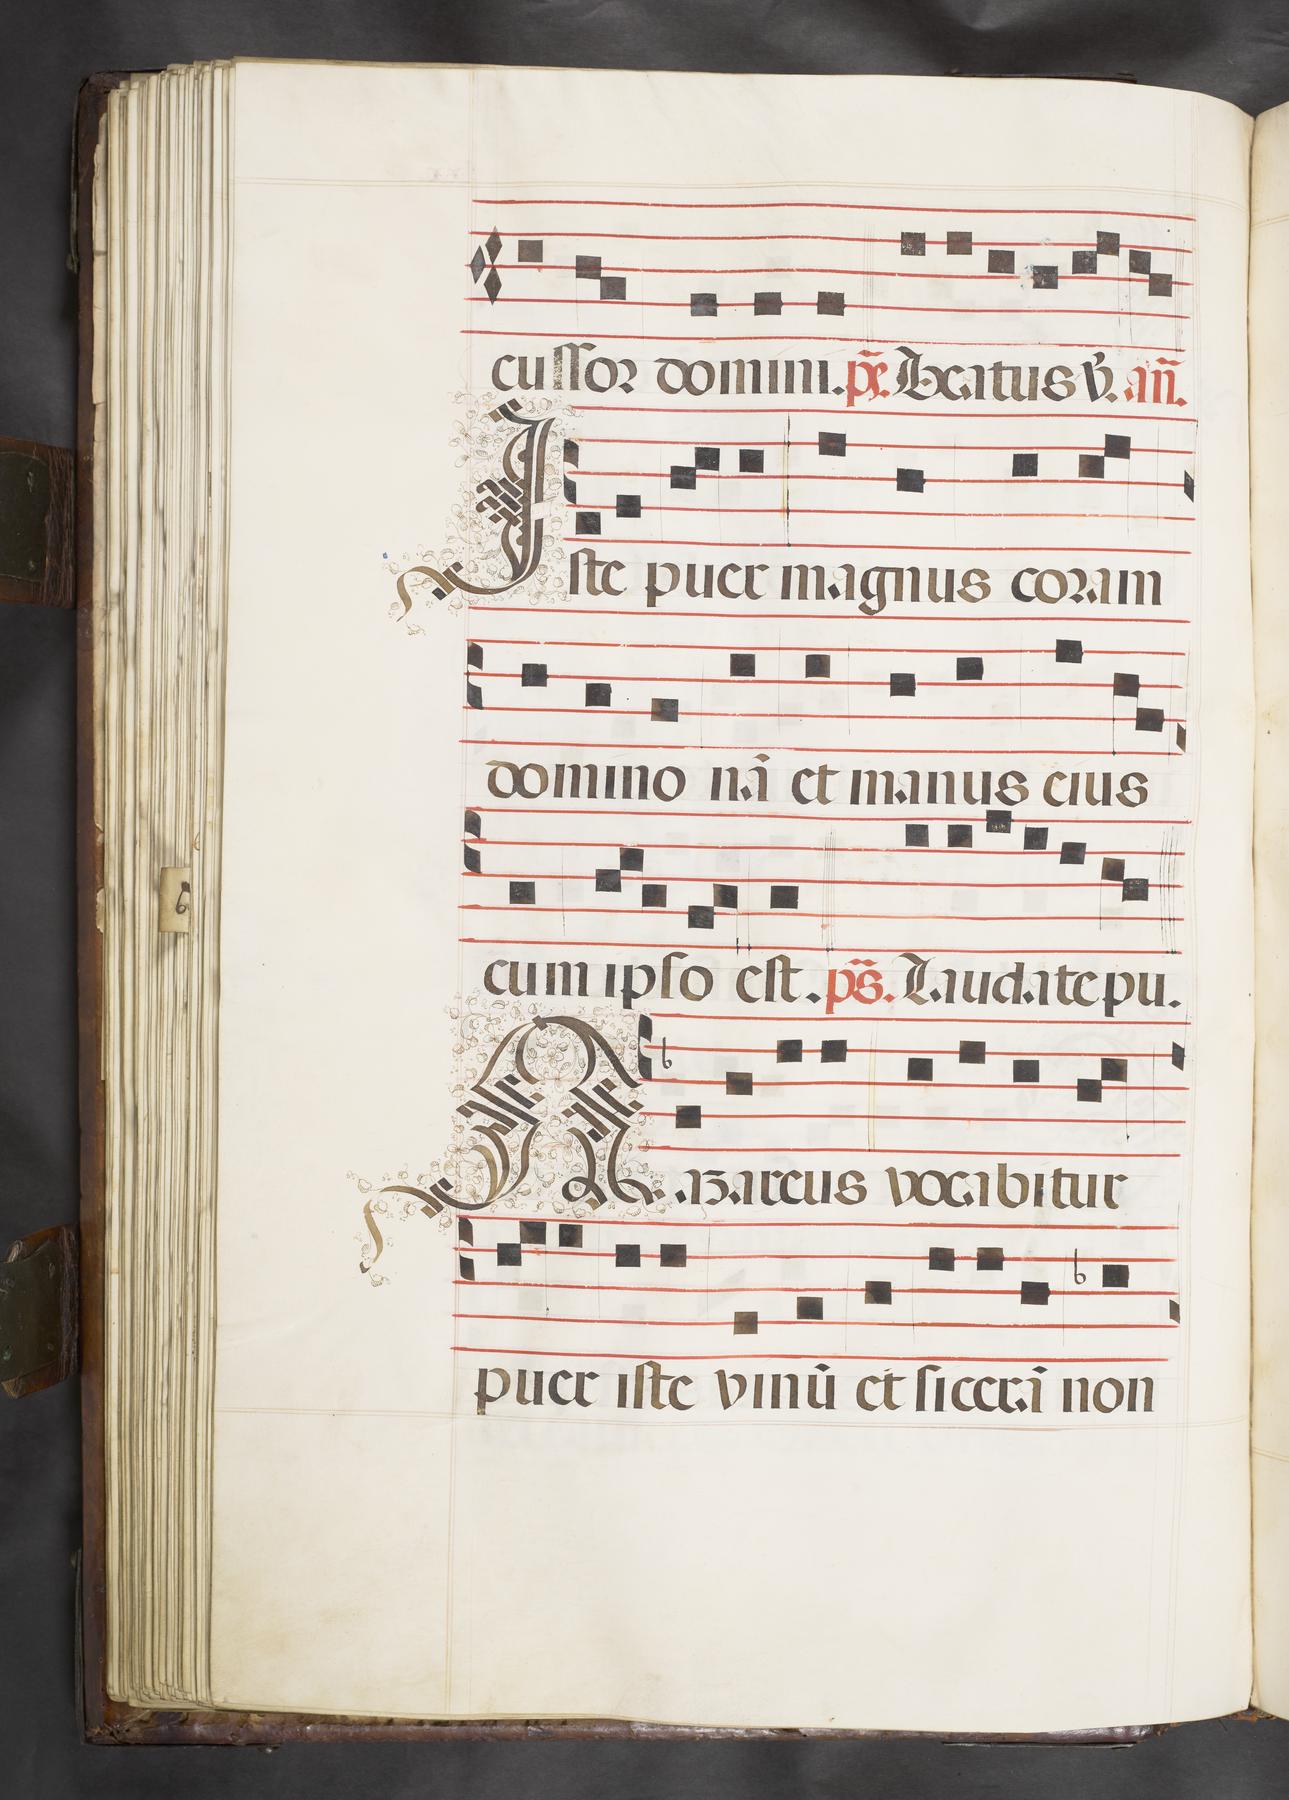 cussor domini. ps̃. Beatus v̉. añ.
Iste puer magnus coram
domino nã et manus eius
cum ipso est. ps̃. Laudate pu.
Nazareus vocabitur
puer iste vinũ et sicerã non
b